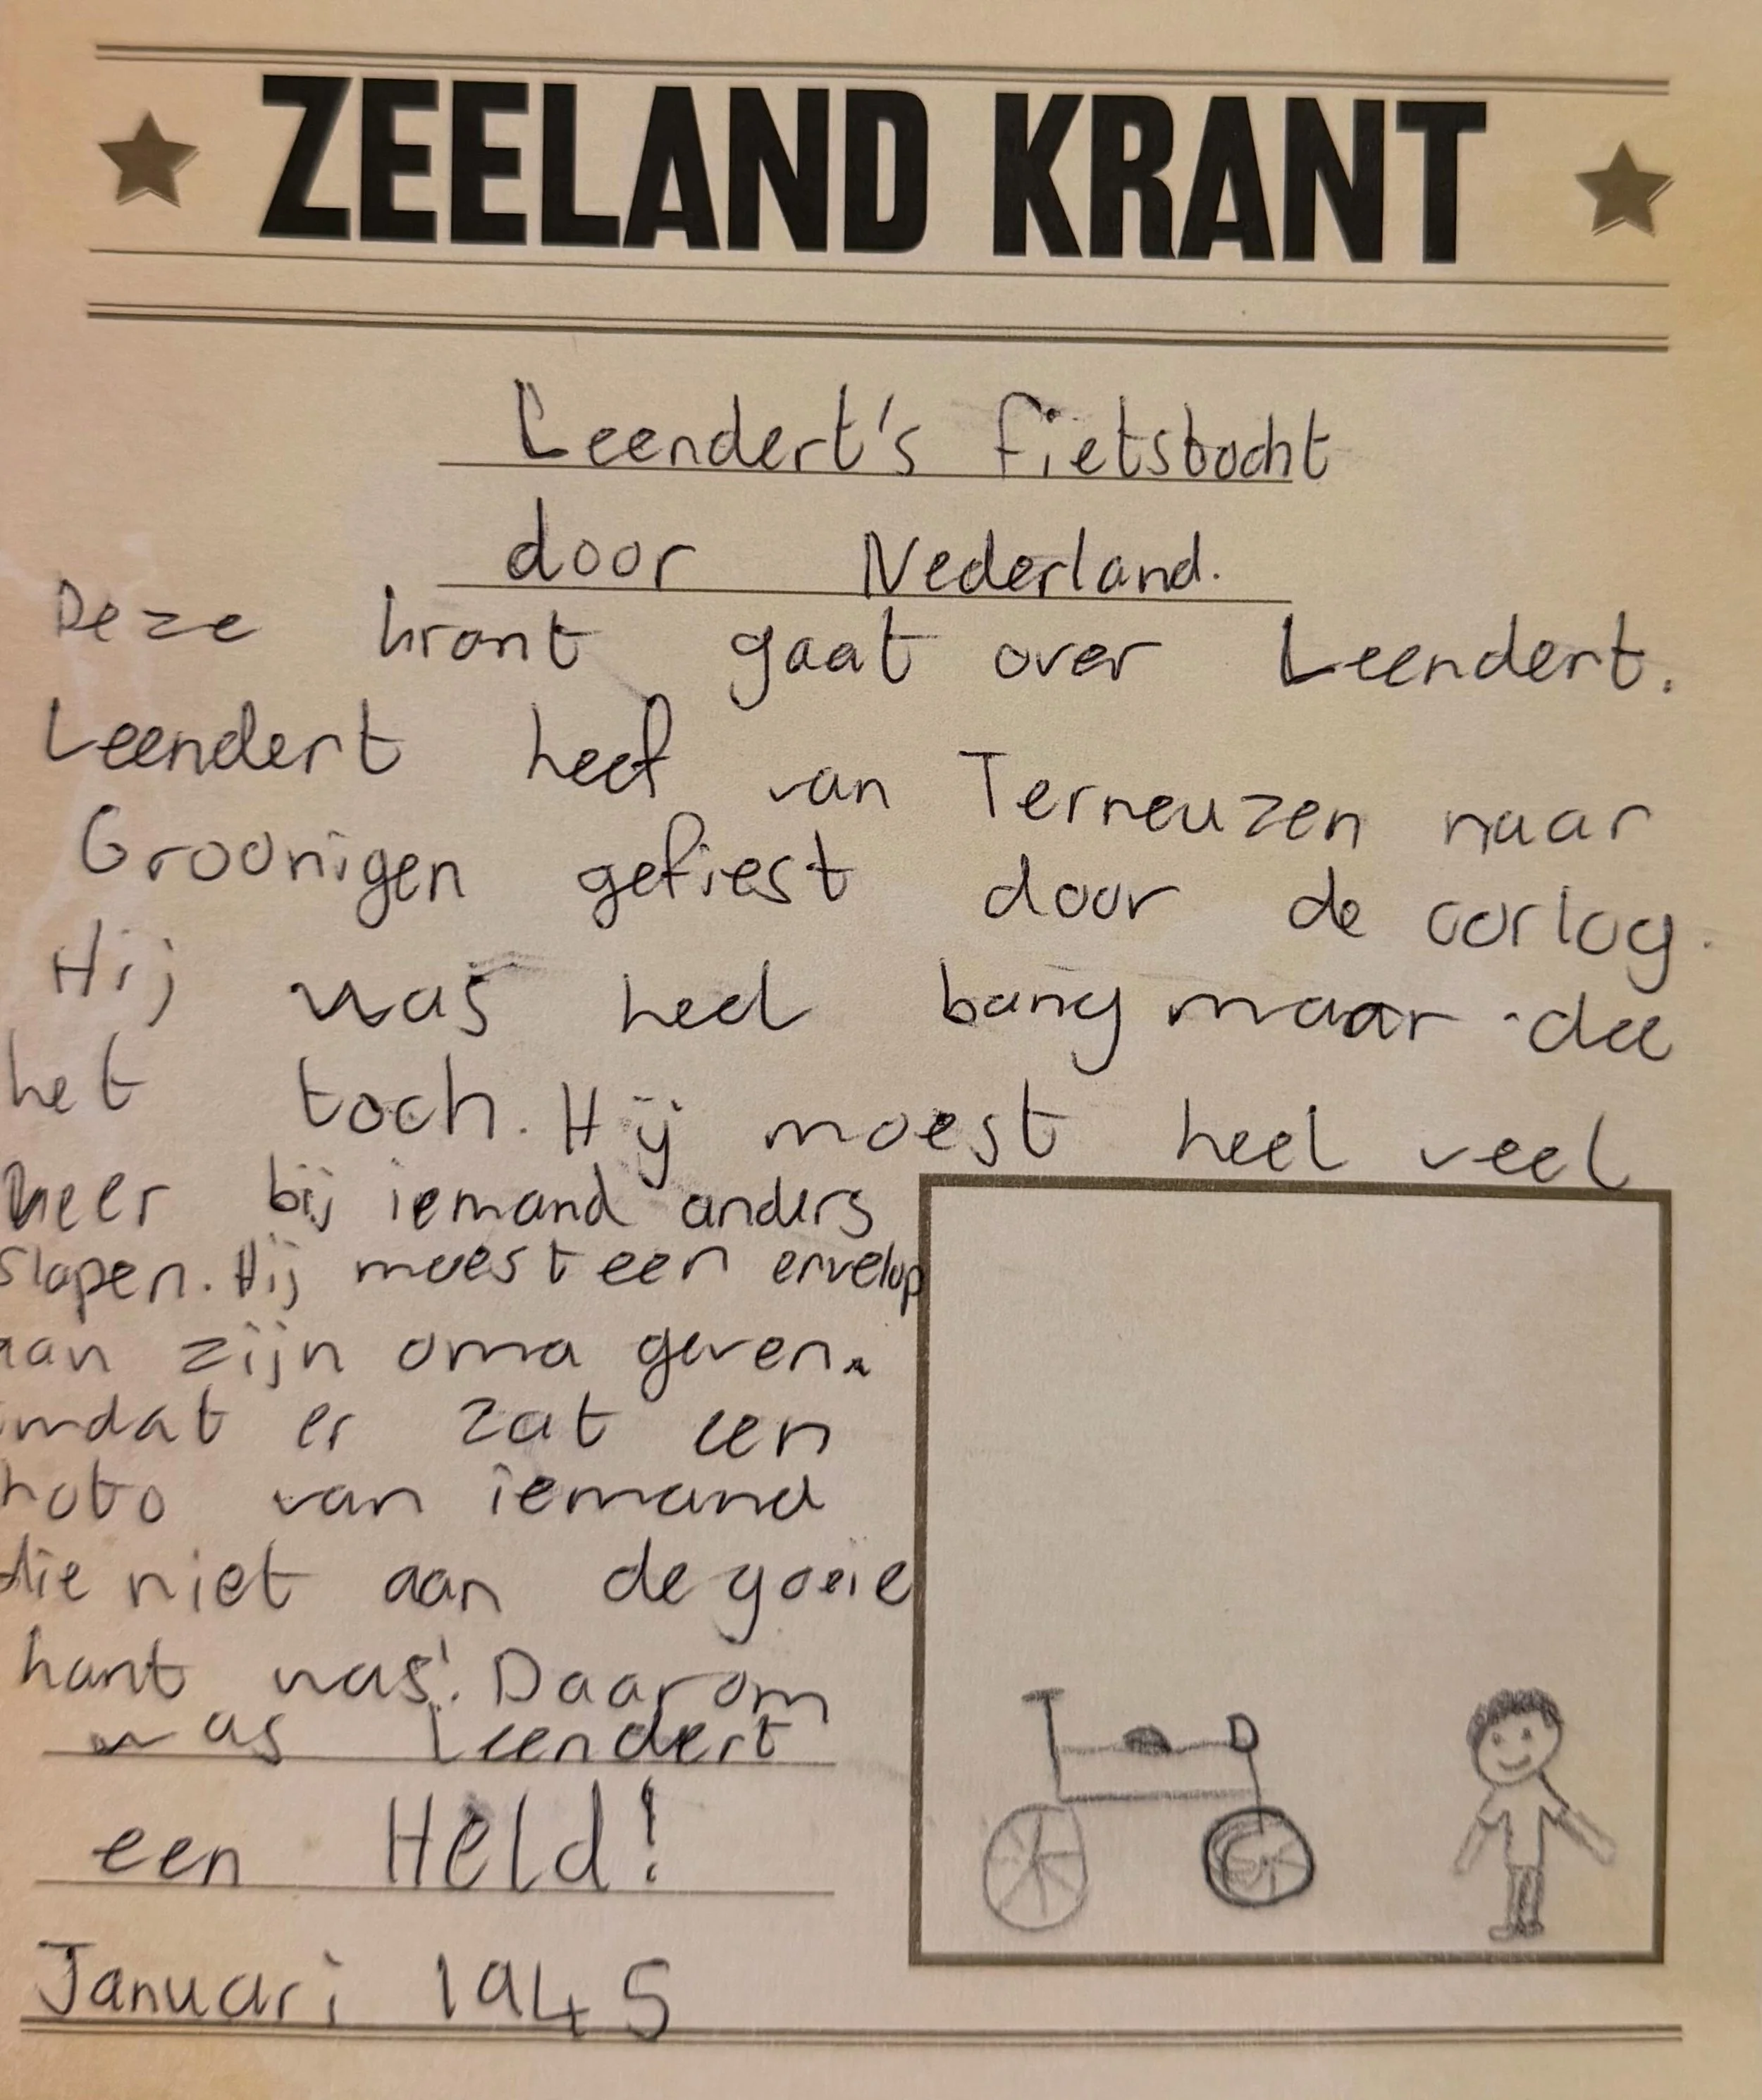 ZEELAND KRANT
Leendert's fietstocht
door Nederland.
Deze krant gaat over Leendert.
Leendert heef van Terneuzen naar
Groonigen gefiest door de oorlog.
Hij was heel bang maar dee
het toch. Hij moest heel veel
keer bij iemand anders
slapen. Hij moest een envelop
aan zijn oma geven.
omdat er zat een
foto van iemand
die niet aan de goeie
kant was! Daarom
was Leendert
een Held!
Januari 1945